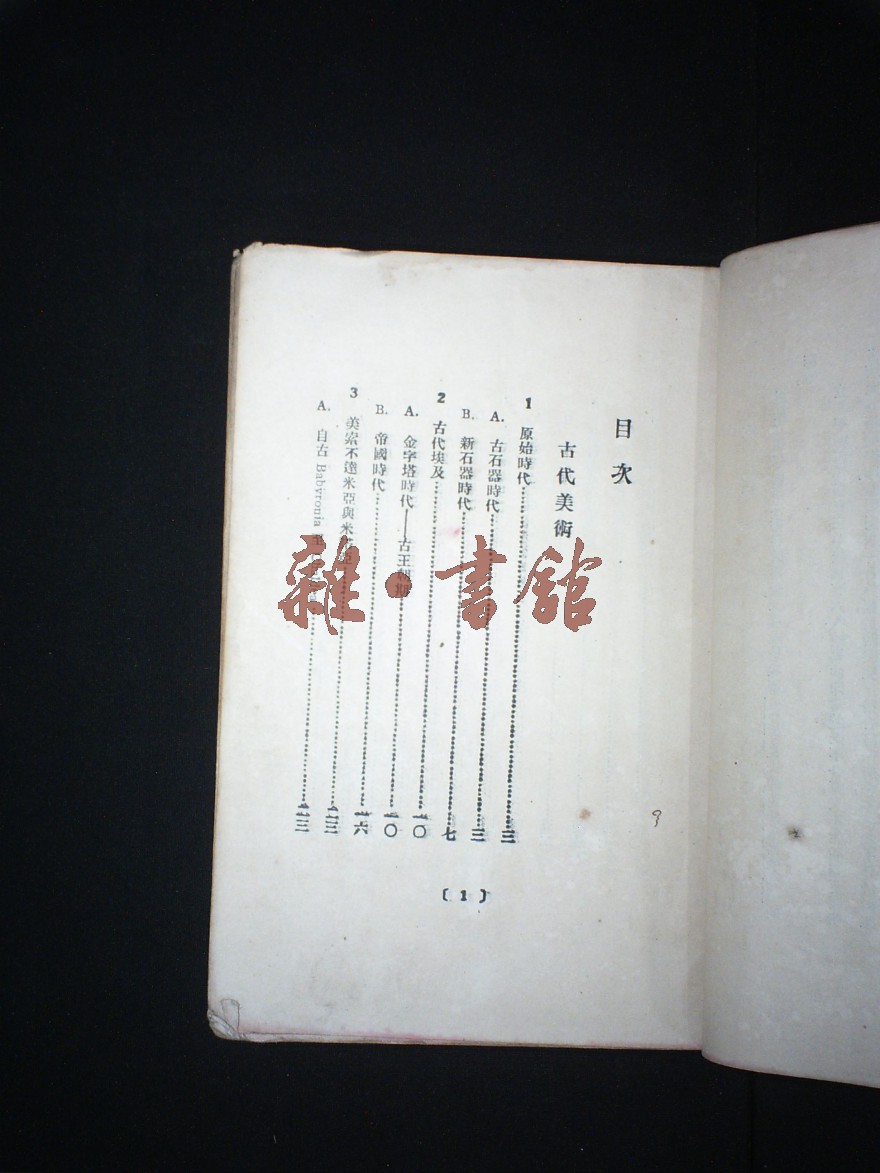 目次
古代美術
1 原始時代……三
A. 古石器時代……三
B. 新石器時代……七
2 古代埃及……一〇
A. 金字塔時代——古王朝期……一〇
B. 帝國時代……一六
3 美索不達米亞與米……二三
A. 自古 Babyronia……二三
〔1〕
9
雜·書館